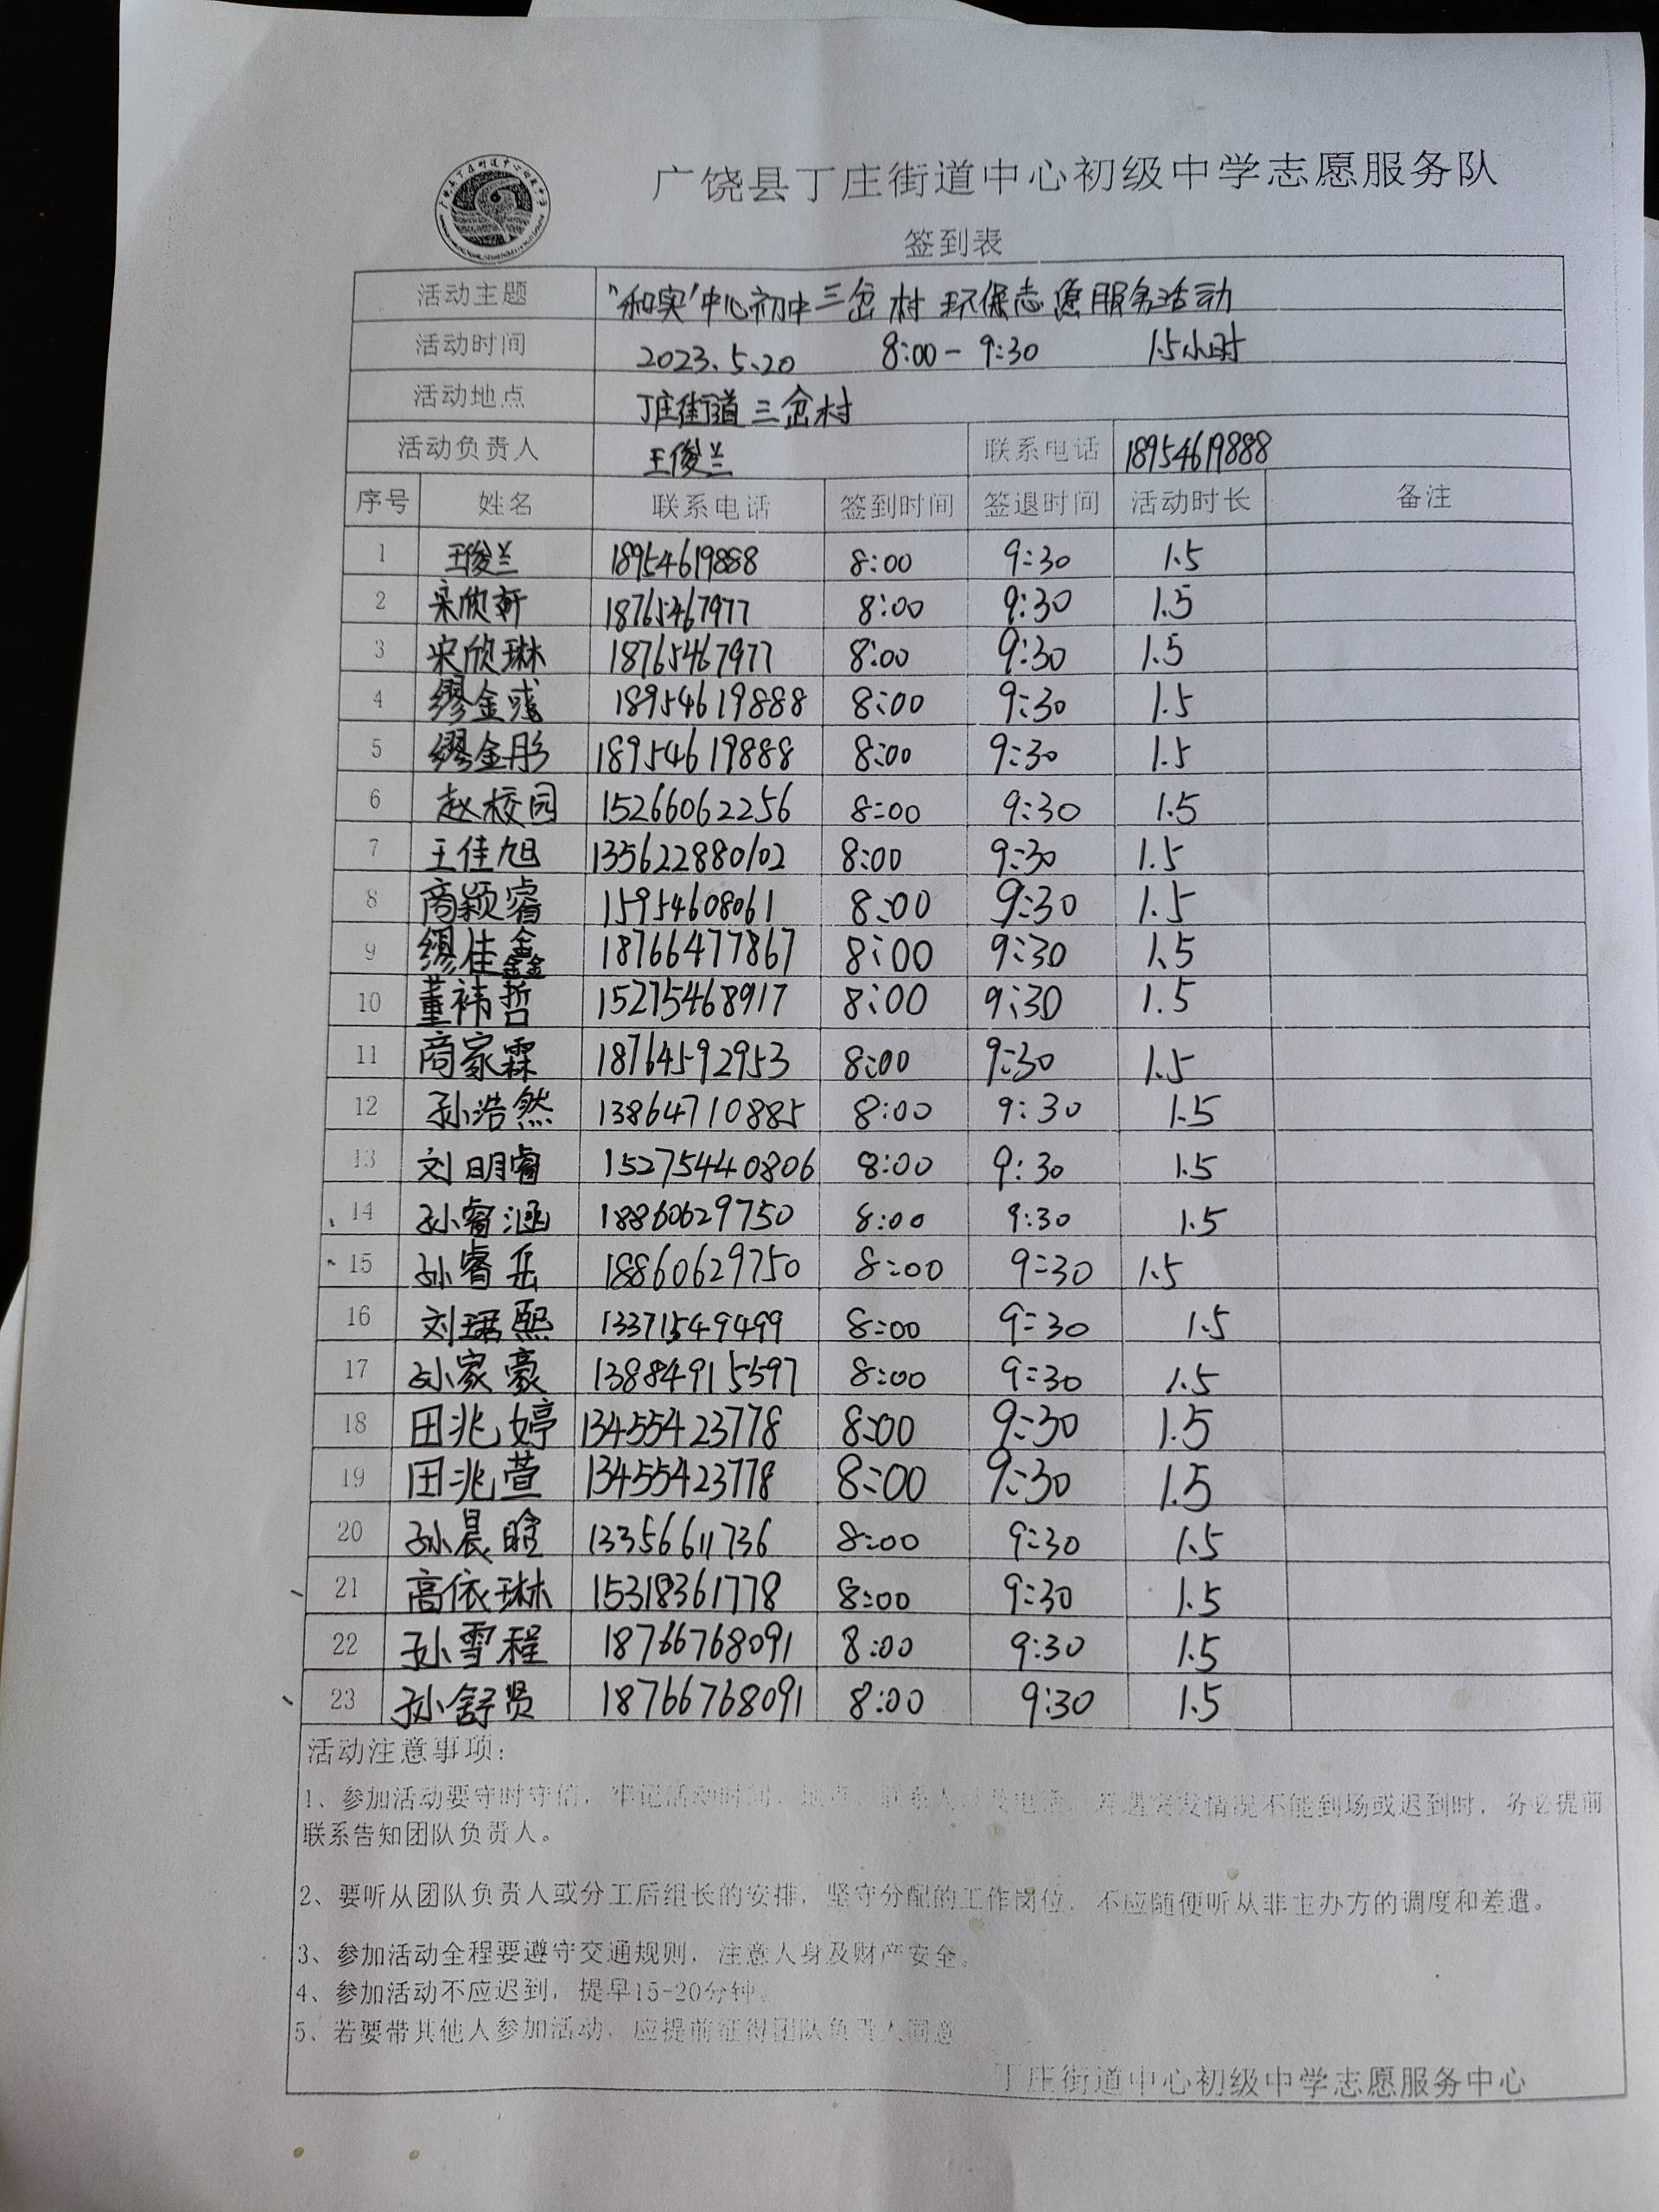 广饶县丁庄街道中心初级中学志愿服务队
签到表
活动主题 "和实"中心初中三岔村环保志愿服务活动
活动时间 2023.5.20 8:00-9:30 1.5小时
活动地点 丁庄街道三岔村
活动负责人 王俊兰 联系电话 18954619888
序号 姓名 联系电话 签到时间 签退时间 活动时长 备注
1 王俊兰 18954619888 8:00 9:30 1.5
2 宋欣轩 18765467977 8:00 9:30 1.5
3 宋欣琳 18765467977 8:00 9:30 1.5
4 缪金彧 18954619888 8:00 9:30 1.5
5 缪金彤 18954619888 8:00 9:30 1.5
6 赵校园 15266062256 8:00 9:30 1.5
7 王佳旭 135622880102 8:00 9:30 1.5
8 商颖睿 15954608061 8:00 9:30 1.5
9 缪佳鑫 18766477867 8:00 9:30 1.5
10 董祎哲 15275468917 8:00 9:30 1.5
11 商家霖 18764592953 8:00 9:30 1.5
12 孙浩然 13864710885 8:00 9:30 1.5
13 刘明睿 152754440806 8:00 9:30 1.5
14 孙睿涵 18860629750 8:00 9:30 1.5
15 孙睿岳 18860629750 8:00 9:30 1.5
16 刘珺熙 13371549499 8:00 9:30 1.5
17 孙家豪 13884915597 8:00 9:30 1.5
18 田兆婷 13455423778 8:00 9:30 1.5
19 田兆萱 13455423778 8:00 9:30 1.5
20 孙晨晗 13356611736 8:00 9:30 1.5
21 高依琳 15318361778 8:00 9:30 1.5
22 孙雪程 18766768091 8:00 9:30 1.5
23 孙舒贤 18766768091 8:00 9:30 1.5
活动注意事项:
1、参加活动要守时守信，牢记活动时间、地点、联系人及电话，若遇突发情况不能到场或迟到时，务必提前
联系告知团队负责人。
2、要听从团队负责人或分工后组长的安排，坚守分配的工作岗位，不应随便听从非主办方的调度和差遣。
3、参加活动全程要遵守交通规则，注意人身及财产安全。
4、参加活动不应迟到，提早15-20分钟。
5、若要带其他人参加活动，应提前征得团队负责人同意
丁庄街道中心初级中学志愿服务中心